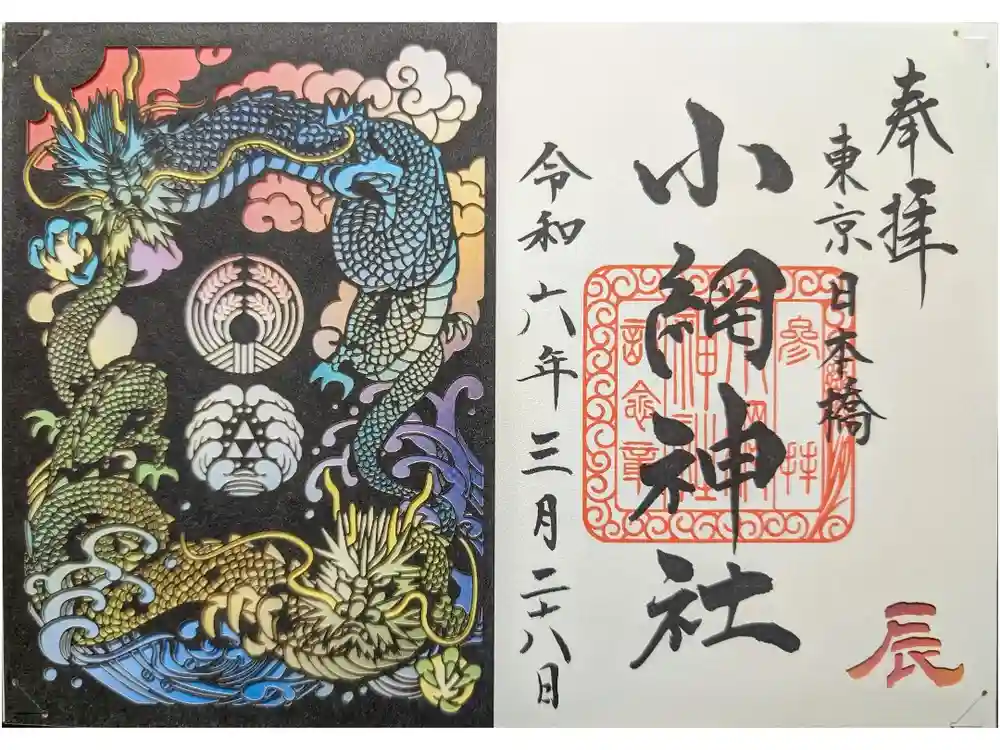 奉拝
東京日本橋
参拝
小網神社
記念章
小網神社
令和六年三月二十八日
辰